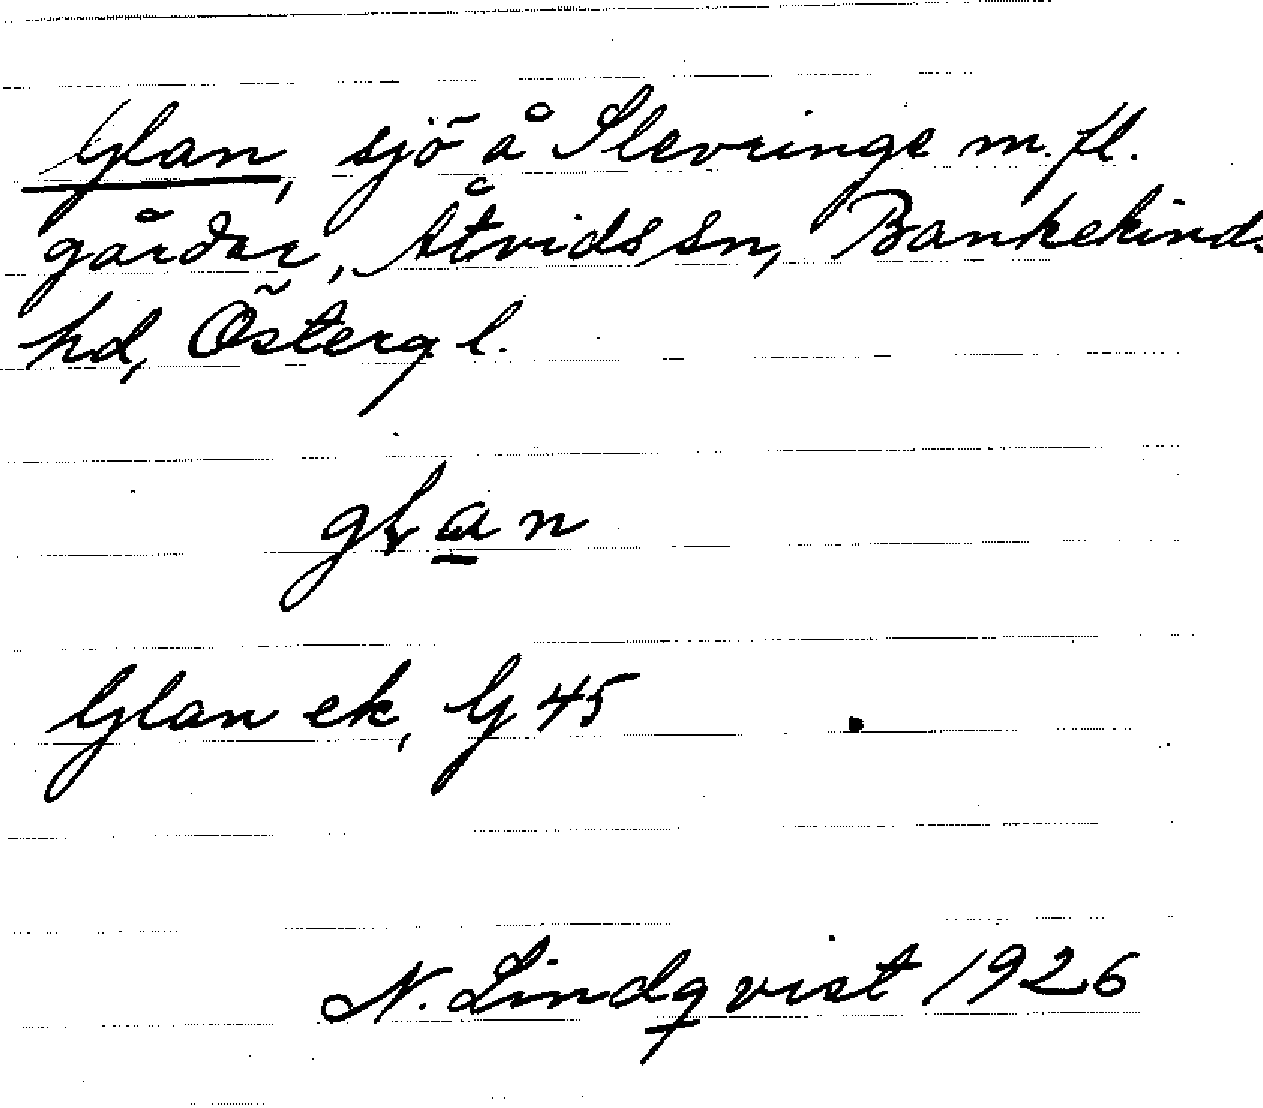 Glan, sjö å Slevringe m.fl.
gårdar, Åtvids sn, Bankekinds
hd, Östergl.
glan
Glan ek, G 45
N. Lindqvist 1926